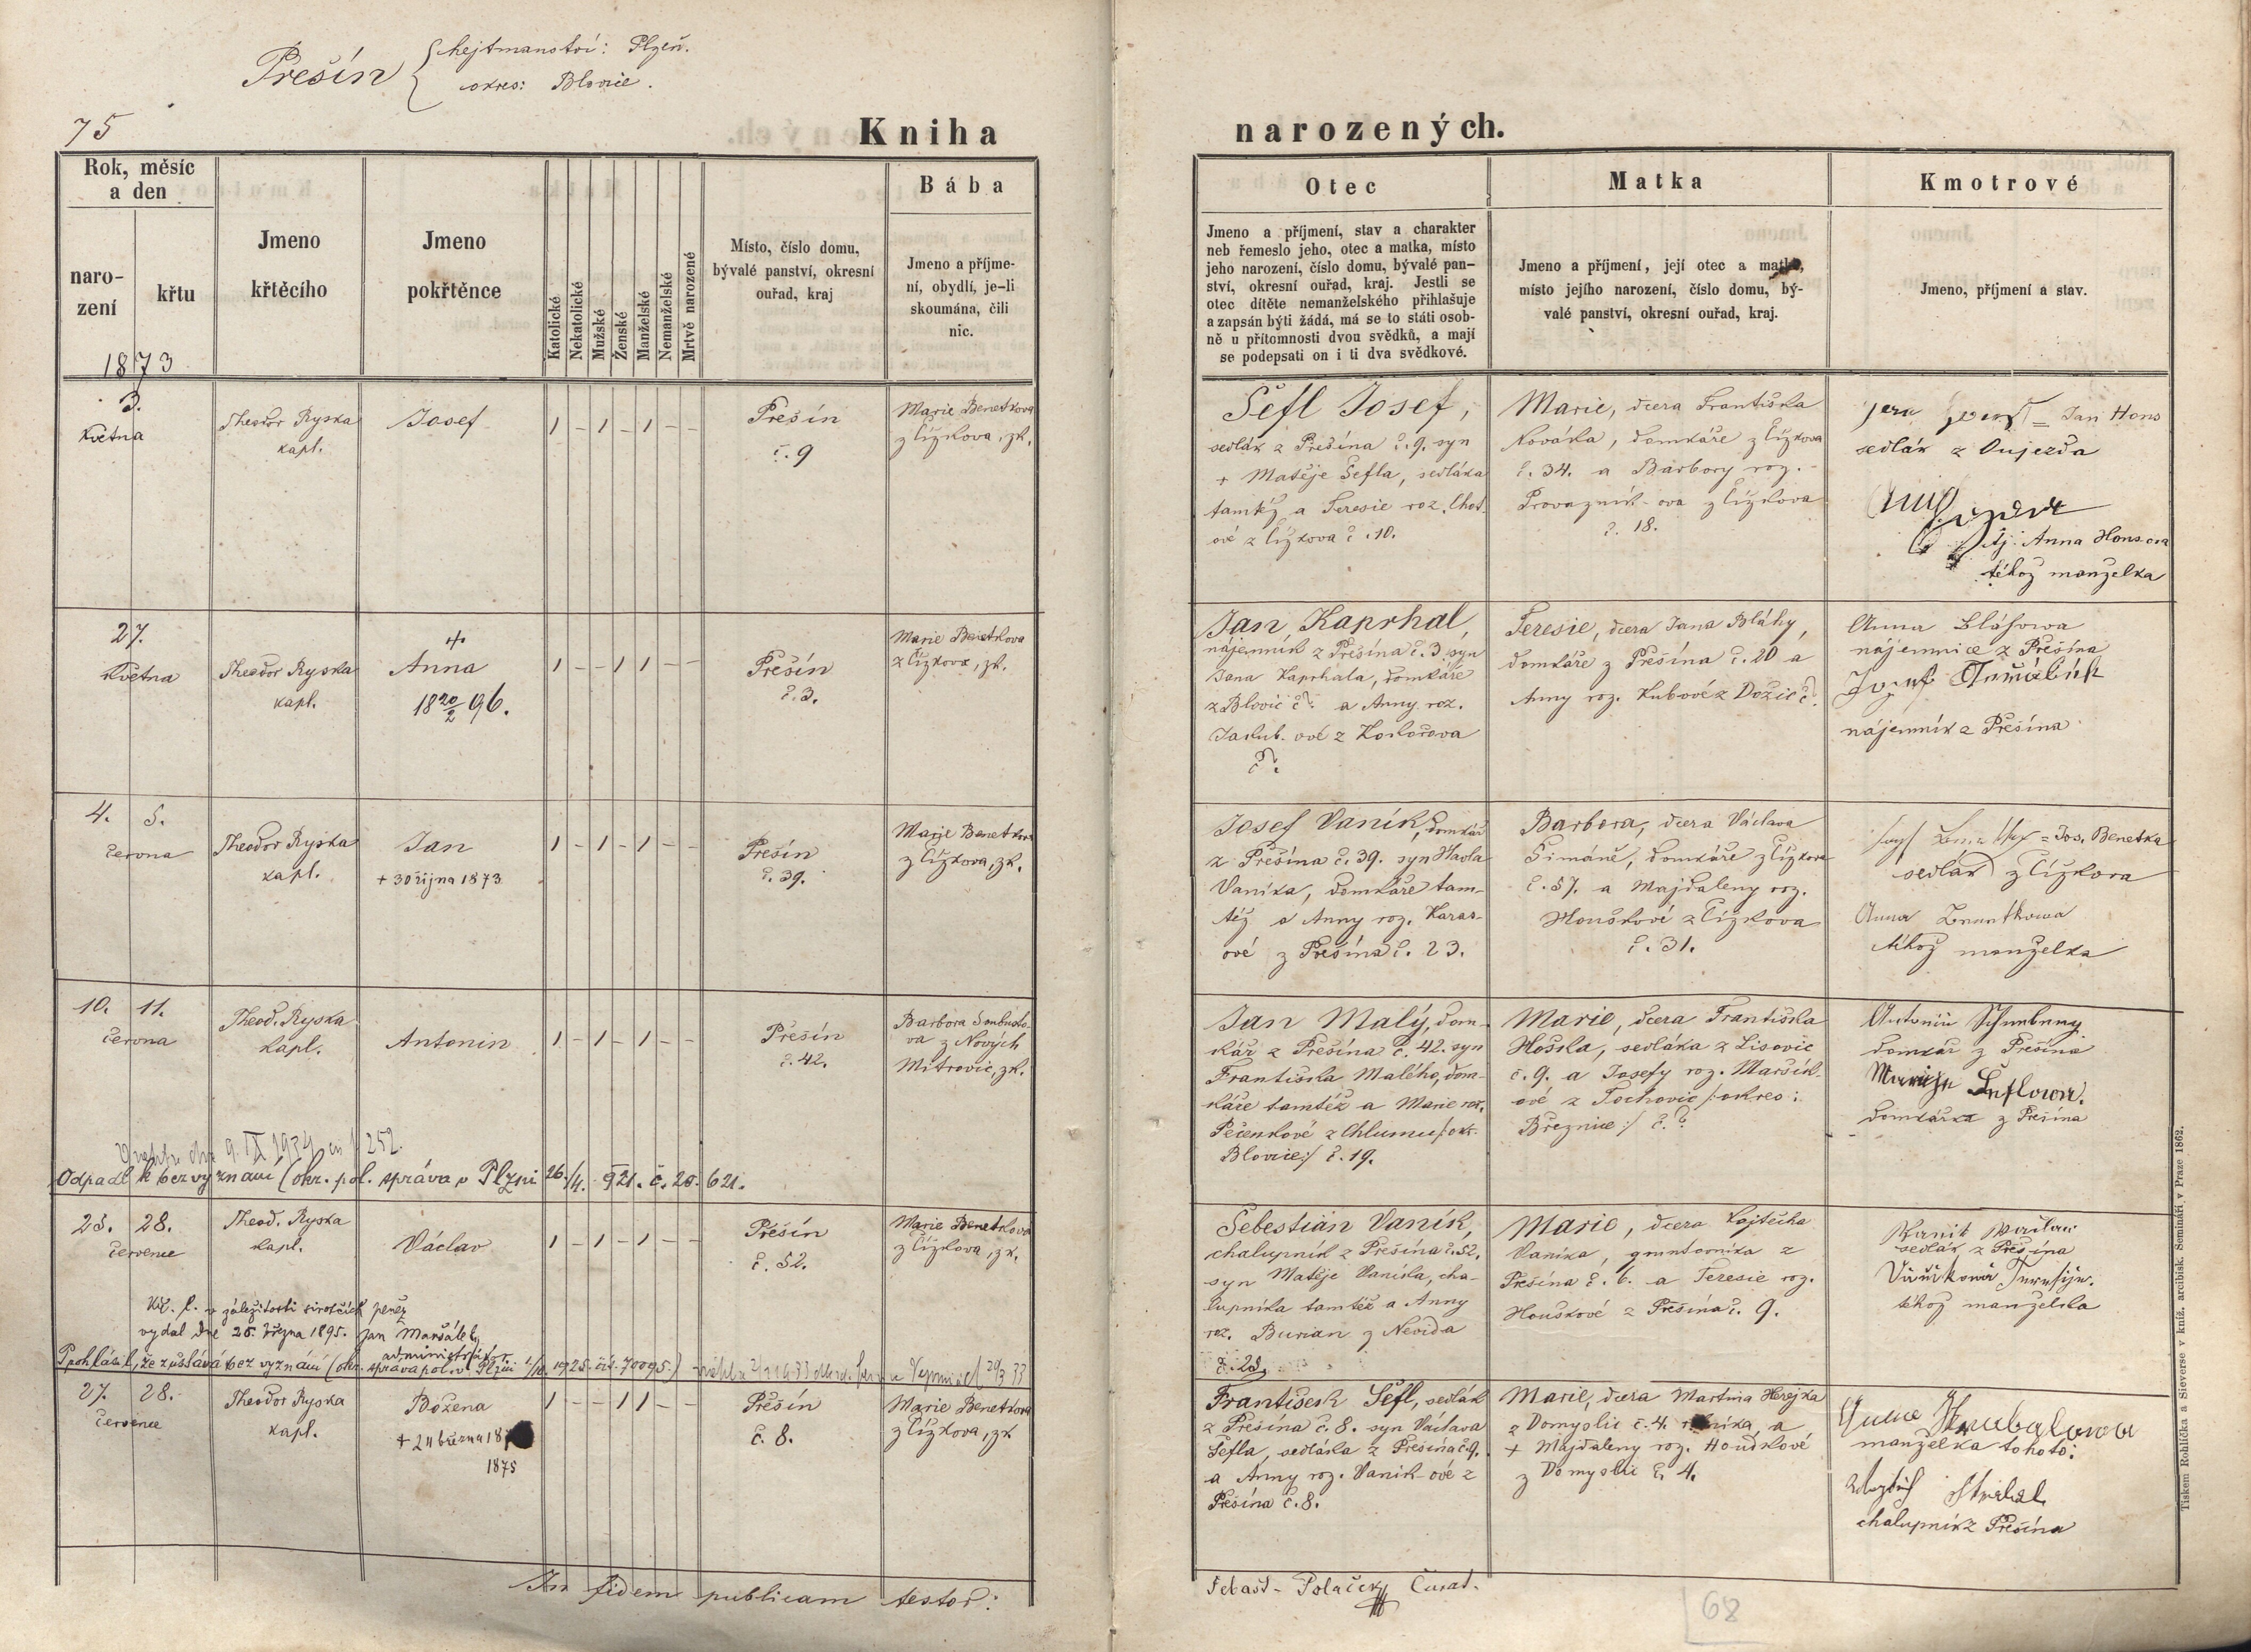 Přešín { hejtmanství: Plzeň.
okres: Blovice.
75
Kniha
narozených.
Rok, měsíc
a den
naro-
zení
křtu
1873
Jmeno
křtěcího
Jmeno
pokřtěnce
Katolické
Nekatolické
Mužské
Ženské
Manželské
Nemanželské
Mrtvě narozené
Místo, číslo domu,
bývalé panství, okresní
ouřad, kraj
Bába
Jmeno a příjme-
ní, obydlí, je-li
skoumána, čili
nic.
Otec
Jmeno a příjmení, stav a charakter
neb řemeslo jeho, otec a matka, místo
jeho narození, číslo domu, bývalé pan-
ství, okresní ouřad, kraj. Jestli se
otec dítěte nemanželského přihlašuje
a zapsán býti žádá, má se to státi osob-
ně u přítomnosti dvou svědků, a mají
se podepsati on i ti dva svědkové.
Matka
Jmeno a příjmení, její otec a matka,
místo jejího narození, číslo domu, bý-
valé panství, okresní ouřad, kraj.
Kmotrové
Jmeno, příjmení a stav.
3.
Května
Theodor Ryska
kapl.
Josef
1 – 1 – 1 – –
Přešín
č. 9
Marie Benetkova
z Čížkova, zk.
Šefl Josef,
sedlák z Přešína č. 9. syn
+ Matěje Šefla, sedláka
tamtéž a Teresie roz. Chot-
ové z Čížkova č. 10.
Marie, dcera Františka
Nováka, domkáře z Čížkova
č. 34. a Barbory roz.
Provazník-ova z Čížkova
č. 18.
= Jan Hons
sedlák z Oujezda
tj. Anna Hons-ova
téhož manželka
27.
Května
Theodor Ryska
kapl.
+
Anna
18 20/2 96.
1 – – 1 1 – –
Přešín
č. 3.
Marie Benetkova
z Čížkova, zk.
Jan Kaprhal,
nájemník z Přešína č. 3 syn
Jana Kaprhala, domkáře
z Blovic č ?. a Anny roz.
Jakub-ové z
č ?.
Teresie, dcera Jana Bláhy,
domkáře z Přešína č. 20 a
Anny roz. Kubové z Dožic č ?.
Anna Bláhowa
nájemnice z Přešína
Jozef
nájemník z Přešína
4. 5.
června
Theodor Ryska
kapl.
Jan
+ 30 října 1873
1 – 1 – 1 – –
Přešín
č. 39.
Marie Benetkova
z Čížkova, zk.
Josef Vaník, domkář
z Přešína č. 39. syn Havla
Vaníka, domkáře tam-
též a Anny roz. Karas-
ové z Přešína č. 23.
Barbora, dcera Václava
Šimáně, domkáře z Čížkova
č. 57. a Majdaleny roz.
Houškové z Čížkova
č. 31.
= Jos. Benetka
sedlák z Čížkova
Anna
téhož manželka
10. 11.
června
Theod. Ryska
kapl.
Antonin
1 – 1 – 1 – –
Přešín
č. 42.
Barbora
va z Nových
Mitrovic, zk.
Jan Malý, dom-
kář z Přešína č. 42. syn
Františka Malého, dom-
káře tamtéž a Marie roz.
Pečenkové z Chlumu /: okr.
Blovice :/ č. 19.
Marie, dcera Františka
Hoška, sedláka z Lisovic
č. 9. a Josefy roz. Maršík-
ové z Tochovic /: okres :
Březnice :/ č. ?
Antonin
domkář z Přešína
domkářka z Přešína
9. IX 1934 252.
Odpadl k bezvyznání (okr. pol. správa v Plzni 26./4. 921. č. 28.621.
25. 28.
července
Theod. Ryska
kapl.
Václav
1 – 1 – 1 – –
Přešín
č. 52.
Marie Benetkova
z Čížkova, zk.
Šebestián Vaník,
chalupník z Přešína č. 52.
syn Matěje Vaníka, cha-
lupníka tamtéž a Anny
roz. Burian z
č. 23.
Marie, dcera Vojtěcha
Vaníka, gruntovníka z
Přešína č. 6. a Teresie roz.
Houškové z Přešína č. 9.
sedlák z Přešína
téhož manželka
Kř. l. v záležitosti sirotčích peněz
vydal dne 25. března 1895. Jan Maršálek,
administrátor
že zůstává bez vyznání (okr. správa pol. v Plzni
27. 28.
července
Theodor Ryska
kapl.
Božena
+ 24 března 187
1875
1 – – 1 1 – –
Přešín
č. 8.
Marie Benetkova
z Čížkova, zk
František Šefl, sedlák
z Přešína č. 8. syn Václava
Šefla, sedláka z Přešína č. 9.
a Anny roz. Vaník-ové z
Přešína č. 8.
Marie, dcera Martina Herejka
z Domyslic č. 4. a
+ Majdaleny roz. Houškové
z Domyslic č. 4.
manželka tohoto:
chalupník z Přešína
In fidem publicam testor:
Šebast. Polaček Curat.
68
Tiskem Rohlíčka a Sieverse v kníž. arcibisk. Semináři v Praze 1862.